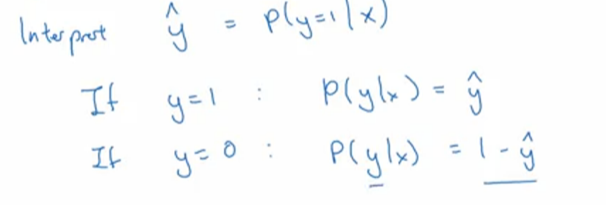 Interpret ŷ = p(y=1|x)
If y=1 : p(y|x) = ŷ
If y=0 : P(y|x) = 1-ŷ